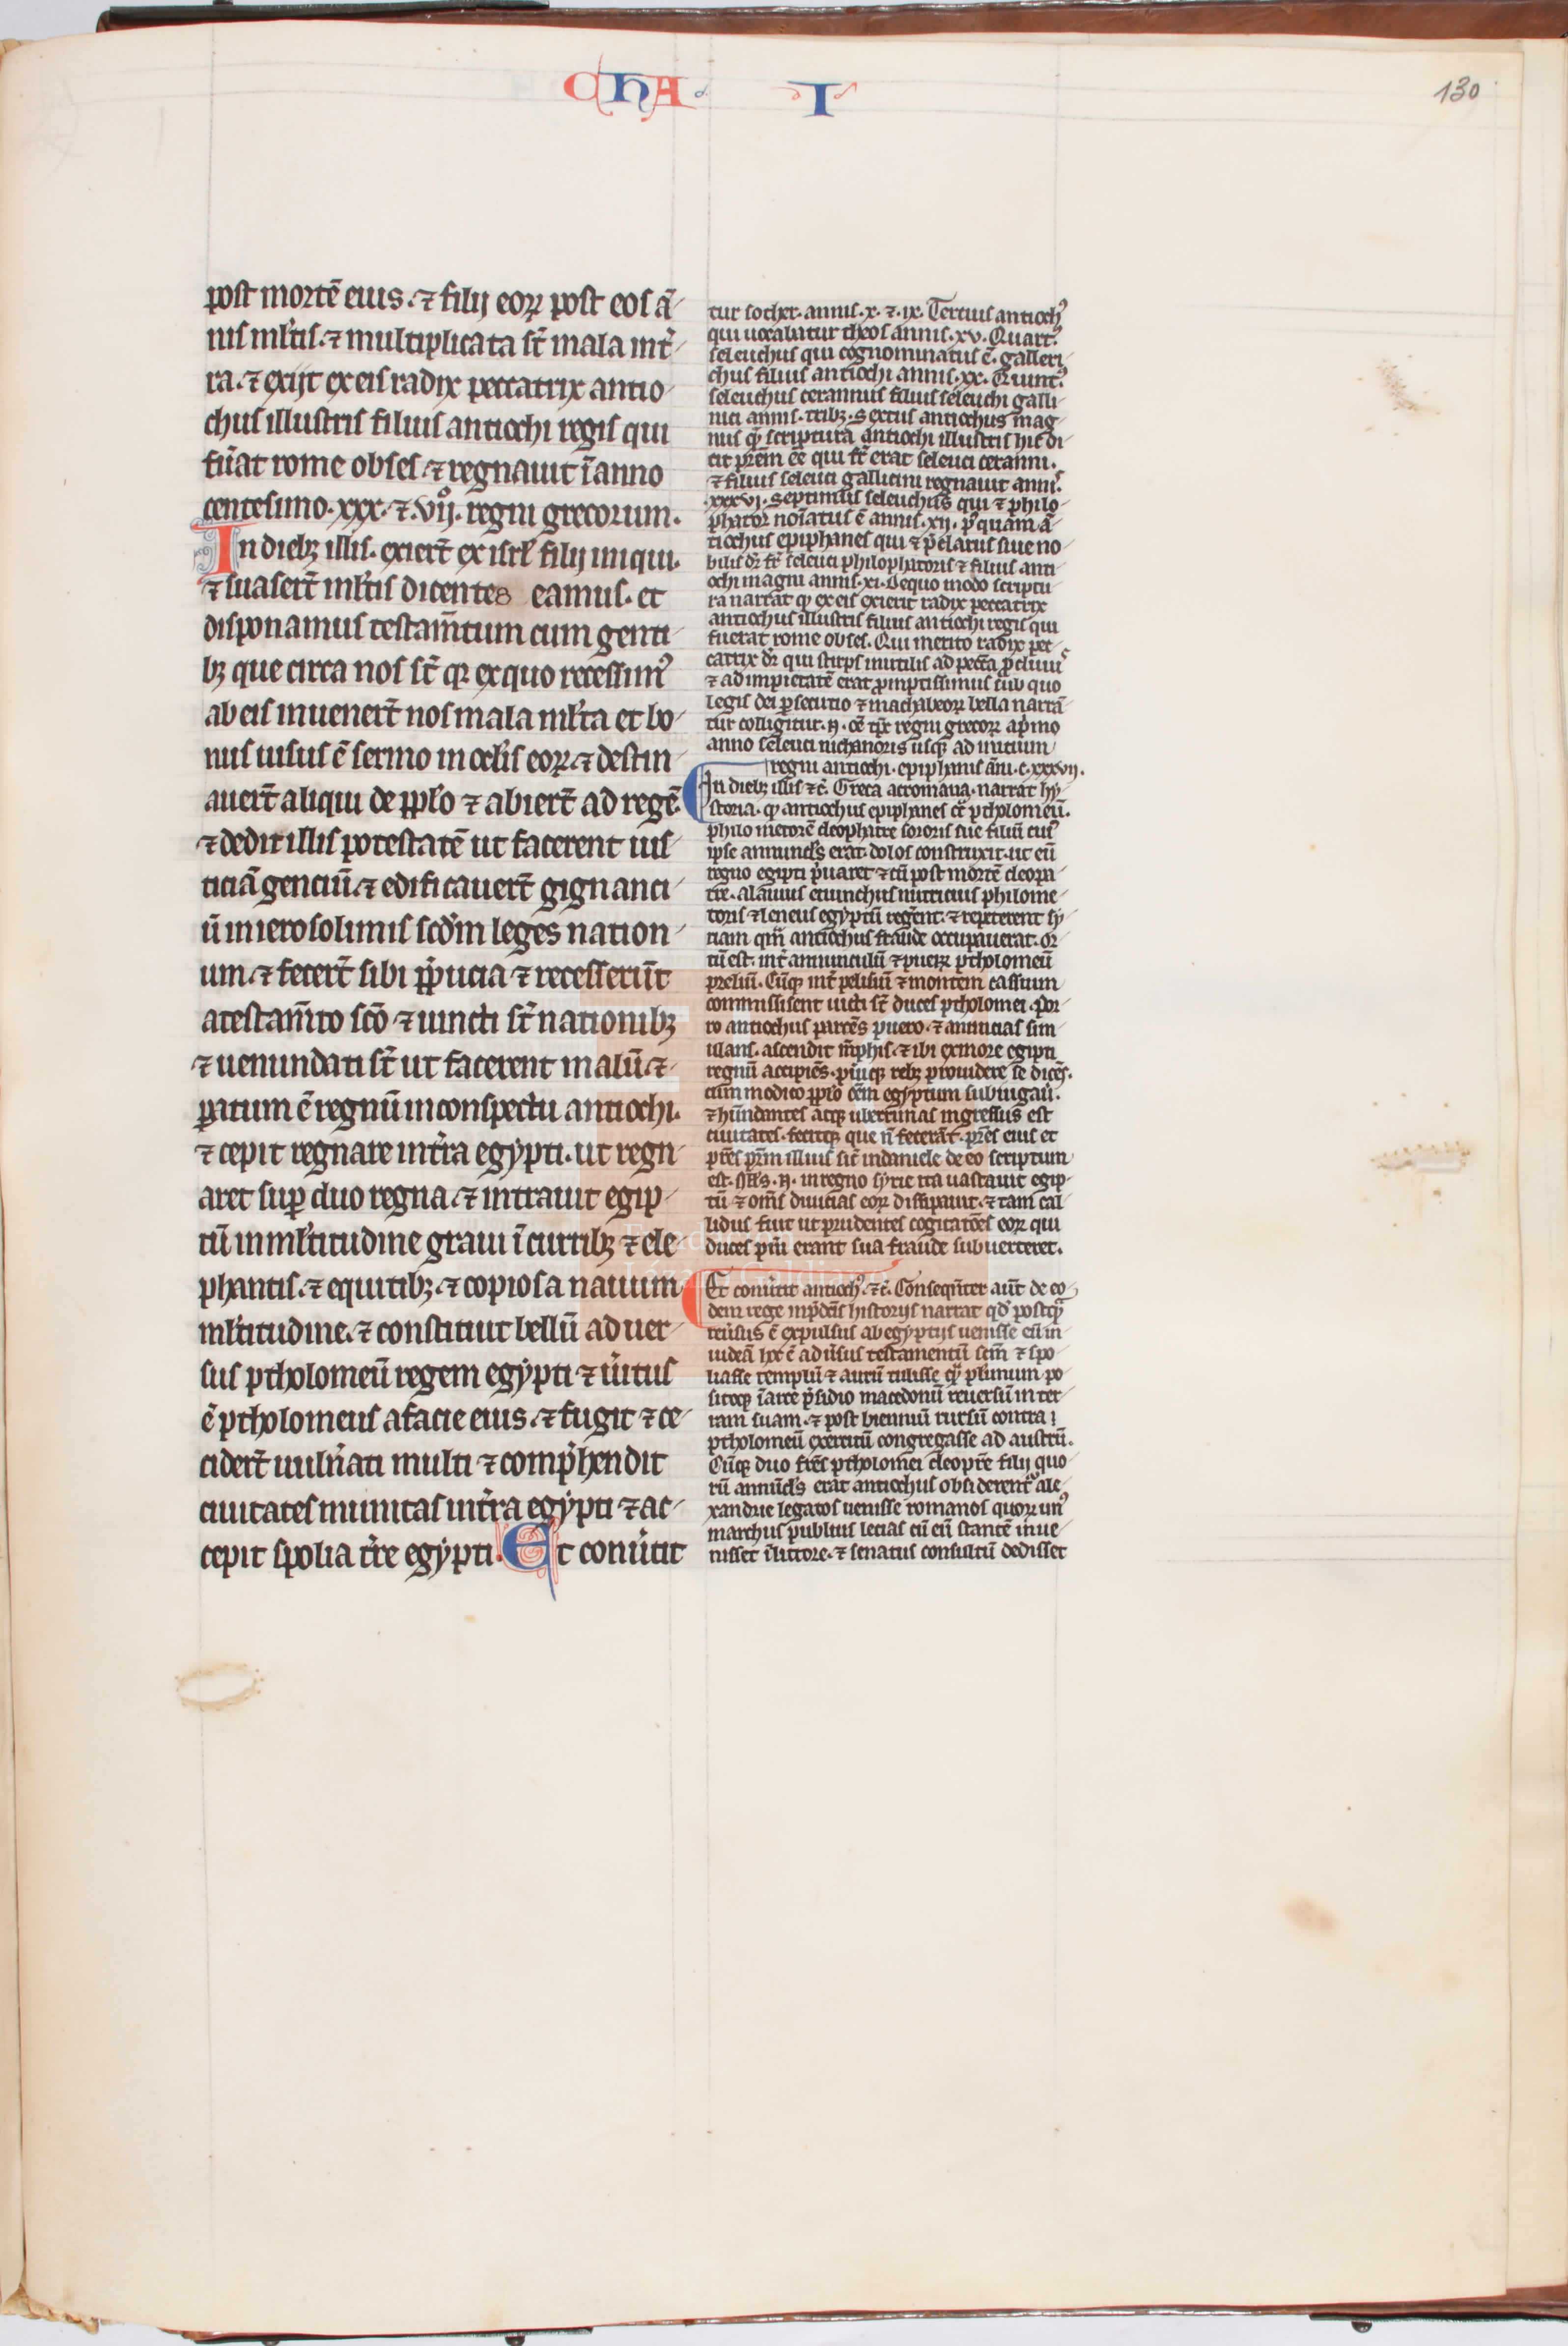 CHA· I
130
post mortē eius. ⁊ filij eorꝝ post eos ā
nis ml̓tis. ⁊ multiplicata st̄ mala in t̓
ra. ⁊ exijt ex eis radix peccatrix antio
chus illustris filius antiochi regis qui
fu̓at rome obses. ⁊ regnauit ī anno
centesimo. xxx. ⁊. vijo. regni grecorum.
In diebꝫ illis. exiert̄ ex isrl̓ filij iniqui.
⁊ suasert̄ ml̓tis dicentes eamus. et
disponamus testam̄tum cum genti
bꝫ que circa nos st̄ qꝛ ex quo recessimꝰ
ab eis inuenert̄ nos mala ml̓ta et bo
nus uisus ē sermo in ocl̓is eorꝝ. ⁊ destin
auert̄ aliqui de ppl̓o ⁊ abiert̄ ad regē.
⁊ dedit illis potestatē ut facerent ius
ticiā genciū. ⁊ edificauert̄ gignanci
ū in ierosolimis scd̓m leges nation
um. ⁊ fecert̄ sibi p̄pucia ⁊ recesserūt
a testam̄to scō ⁊ uincti st̄ nationibꝫ
⁊ uenundati st̄ ut facerent malū. ⁊
patum ē regnū in conspectu antiochi.
⁊ cepit regnare in t̓ra egypti. ut regn
aret suꝑ duo regna. ⁊ intrauit egip
tū in ml̓titudine graui ī curribꝫ ⁊ ele
phantis. ⁊ equitibꝫ. ⁊ copiosa nauium
ml̓titudine. ⁊ constituit bellū aduer
sus ptholomeū regem egypti ⁊ u̓itus
ē ptholomeus a facie eius. ⁊ fugit ⁊ ce
cidert̄ uuln̓ati multi ⁊ comp̓hendit
ciuitates munitas in t̓ra egypti ⁊ ac
cepit spolia t̓re egypti. Et conu̓tit
tur sother. annis. x. ⁊. ix. Tertius antiochꝰ
qui uocabatur theos annis. xv. Quartꝰ
seleuchus qui cognominatus ē. galleri
chus filius antiochi annis. xx. Quintꝰ
seleuchus cerannus filius seleuchi galli
nici annis. tribꝫ. Sextus antiochus mag
nus qͥ scriptura antiochi illustris hic di
cit p̄rem eē qui fr̄ erat seleuci ceranni.
⁊ filius seleuci gallicini regnauit annis
xxxvj. Septimus seleuchus qui ⁊ philo
phator noīatus ē annis. xij. pꝰquam ā
tiochus epiphanes qui ⁊ p̄clarus siue no
bilis dr̄ fr̄ seleuci philophatoris ⁊ filius anti
ochi magni annis. xi. De quo modo scriptu
ra narrat qͥ ex eis exierit radix peccatrix
antiochus illustris filius antiochi regis qui
fuerat rome obses. Qui merito radix pec
catrix dr̄ qui stirps inutilis ad pecc̄a p̄cliuis
⁊ ad impietatē erat promptissimus sub quo
legis dei ꝑsecutio ⁊ machabeorꝝ bella narrā
tur colligitur. n. oē tp̄r regni grecorꝝ a p̓mo
anno seleuci nichanoris usqꝫ ad initium
regni antiochi. epiphanis āni. c. xxxvij.
In diebꝫ illis ⁊c̄. Greca ac romana. narrat hy
storia. qͥ antiochus epiphanes cͣ ptholomeū.
philo metorē cleophatre sororis sue filiū cuiꝰ
ipse auuncl̓s erat. dolos construxit. ut eū
regno egipti p̓uaret ⁊ cū post mortē cleopa
tre. alauius euinchus nutricius philome
toris ⁊ leneus egyptū regeēnt. ⁊ repeterent sy
riam qm̄ antiochus fraude occupauerat. or
tū est. int̓ auunculū ⁊ pueꝝ ptholomeū
preliū. Cūqꝫ int̓ pelisiū ⁊ montem cassium
commisissent uicti st̄ duces ptholomei. Por
ro antiochus parcēs puero. ⁊ amicicias sim
ulans. ascendit mēphis. ⁊ ibi ex more egipti
regnū accipiēs. pueriqꝫ rebꝫ prouidere se dicēs.
cum modico ppl̓o oēm egyptum subiugau̓.
⁊ hūndantes atqꝫ uberrimas ingressus est
ciuitates. fecitqꝫ que n̄ fecerāt. pr̄es eius et
pr̄es pr̄m illius sic̄ in daniele de eo scriptum
est. n. in regno syrie ita uastauit egip
tū ⁊ om̄s diuicias eorꝝ dissipauit. ⁊ tam cal
lidus fuit ut prudentes cogitatōes eorꝝ qui
duces p̓mi erant sua fraude subuerteret.
Et conu̓tit antiochꝰ. ⁊c̄. Conseqn̄ter aūt de eo
dem rege in p̓dc̄is historijs narrat qd̓ postqͣ
reu̓sus ē expulsus ab egyptijs uenisse eū in
iudeā hoc ē adu̓sus testamentū sc̄m ⁊ spo
liasse templū ⁊ aurū tulisse qͣ plurimum. po
sitoqꝫ ī arce p̓sidio macedonū reuersū in ter
ram suam. ⁊ post bienniū rursū contra
ptholomeū exercitū congregasse ad austrū.
Cūqꝫ duo fr̄es ptholomei cleopr̄e filij quo
rū auūcl̓s erat antiochus obsiderent̄ ale
xandrie legatos uenisse romanos quorꝝ unꝰ
marchus publius lecias cū eū stantē inue
nisset ī littore. ⁊ senatus consultū dedisset